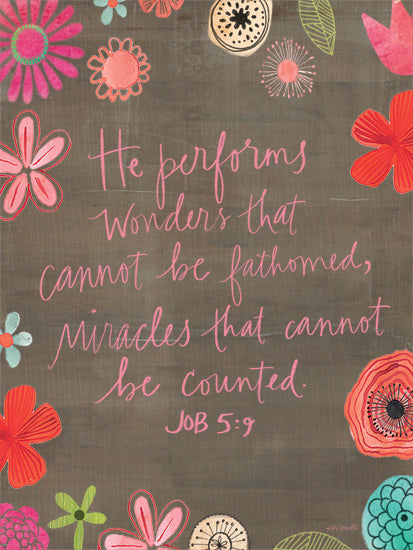 He performs
wonders that
cannot be fathomed,
miracles that cannot
be counted.
JOB 5:9